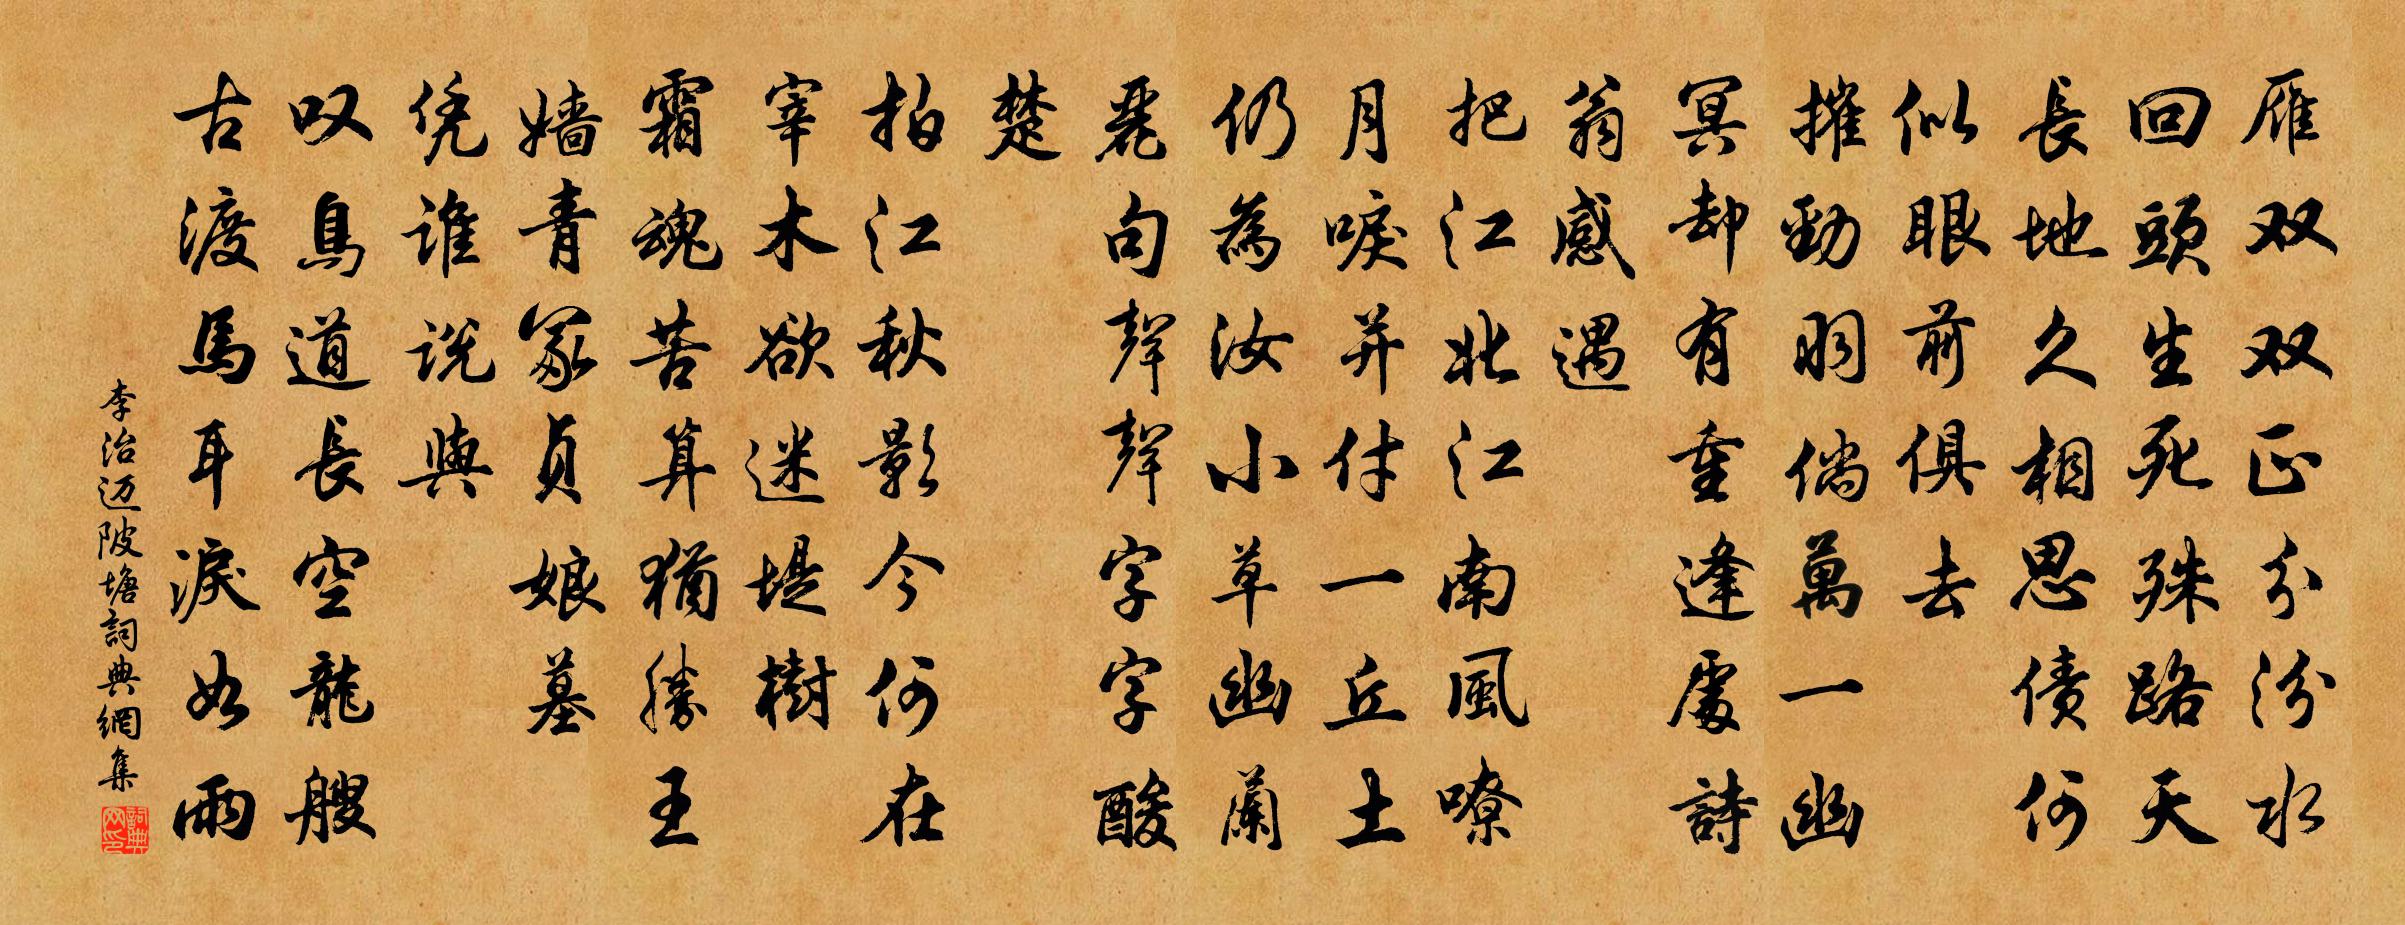 雁双双正分汾水
回頭生死殊路天
長地久相思債何
似眼前俱去
摧勁羽倘萬一幽
冥却有重逢處詩
翁感遇
把江北江南風嘹
月唳并付一丘土
仍為汝小草幽蘭
麗句聲聲字字酸
楚
拍江秋影今何在
宰木欲迷堤樹
霜魂苦算猶勝王
嬙青冢貞娘墓
凭誰説與
叹鳥道長空龍艘
古渡馬耳淚如雨
李治迈陂塘詞典網集
詞典网印